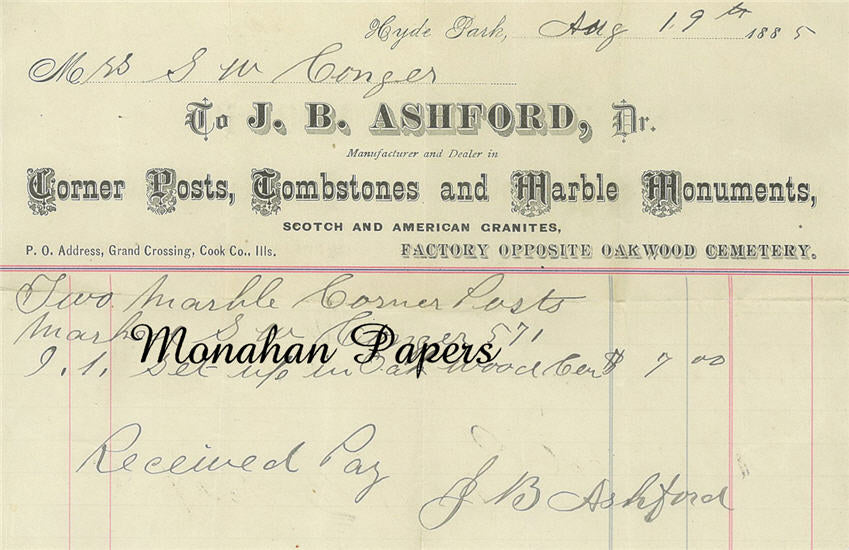 Hyde Park, Aug 19th 1885
Mrs S W Conger
To J. B. ASHFORD, Dr.
Manufacturer and Dealer in
Corner Posts, Tombstones and Marble Monuments,
SCOTCH AND AMERICAN GRANITES,
P. O. Address, Grand Crossing, Cook Co., Ills. FACTORY OPPOSITE OAKWOOD CEMETERY.
Two Marble Corner Posts
S W Conger 571
Monahan Papers
set up in Oakwood Cem $ 7 00
Received Pay
J B Ashford